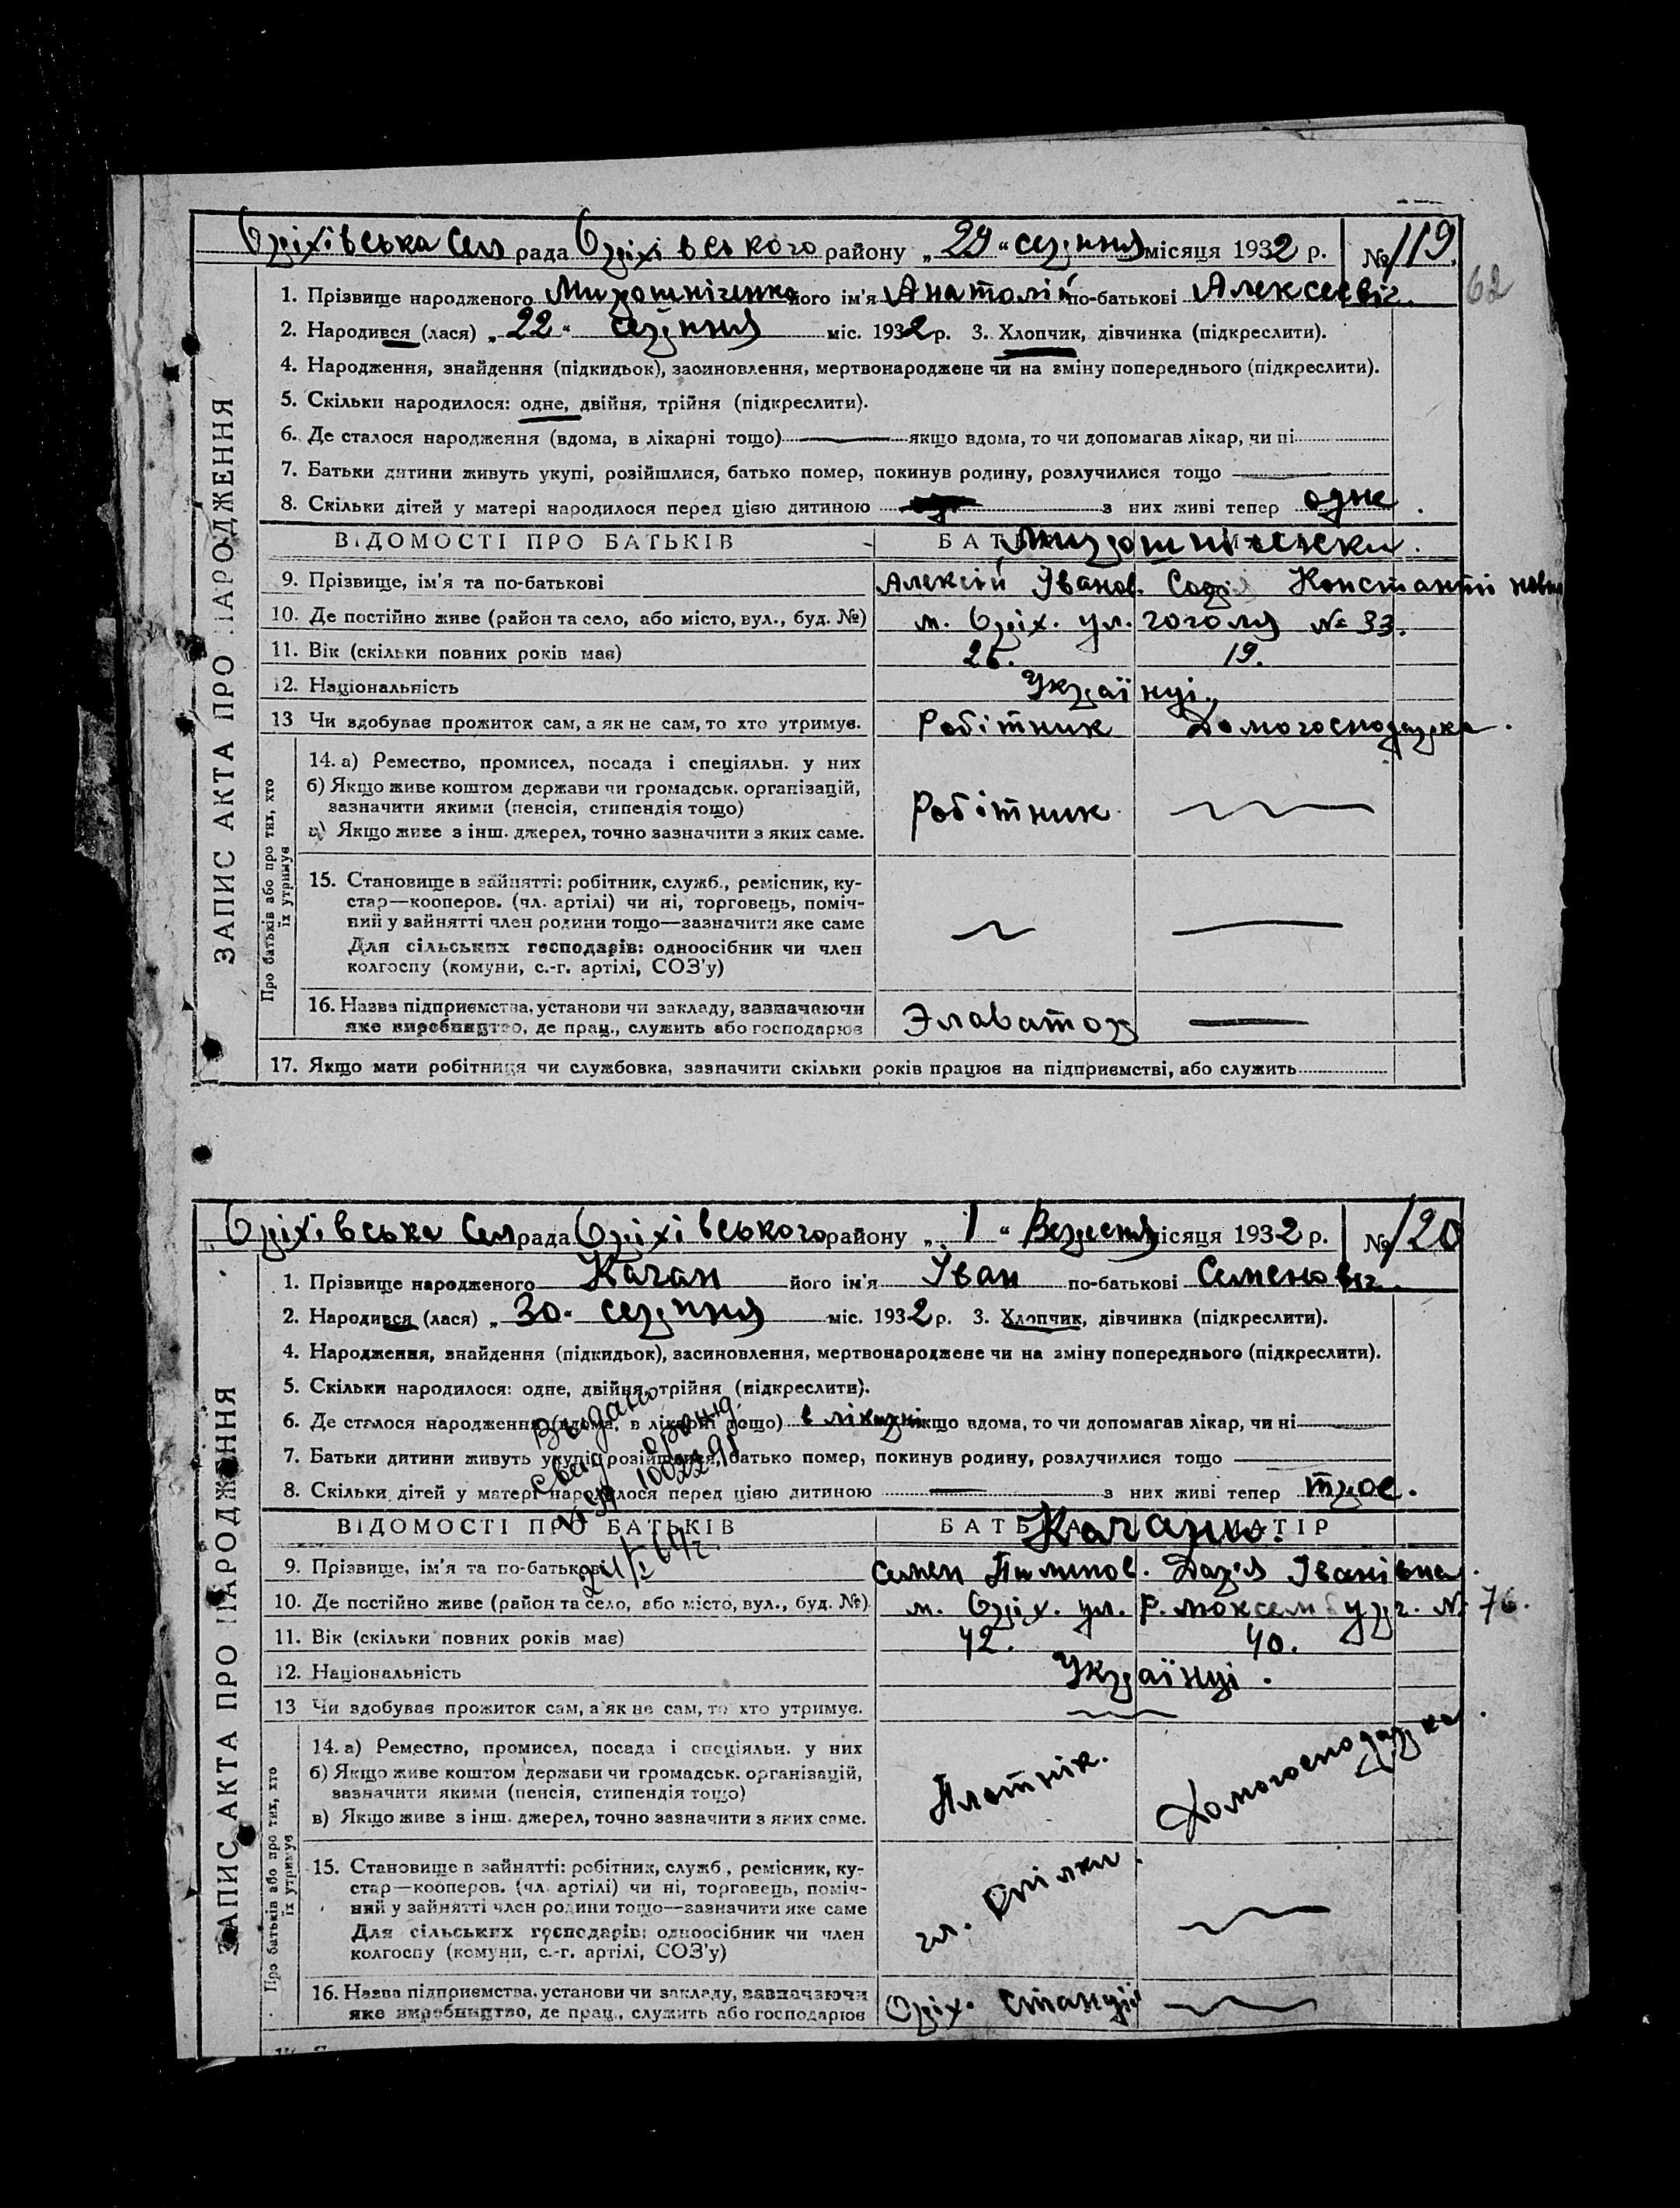 62
Оріхівська Сел рада Оріхівського району „29“ серпня місяця 1932 р. № 119.
1. Прізвище народженого Мирошніченко його ім'я Анатолій по-батькові Алексеевіч.
2. Народився (лася) „22“ серпня міс. 1932 р. 3. Хлопчик, дівчинка (підкреслити).
4. Народження, знайдення (підкидьок), засиновлення, мертвонароджене чи на зміну попереднього (підкреслити).
5. Скільки народилося: одне, двійня, трійня (підкреслити).
6. Де сталося народження (вдома, в лікарні тощо) якщо вдома, то чи допомагав лікар, чи ні
7. Батьки дитини живуть укупі, розійшлися, батько помер, покинув родину, розлучилися тощо
8. Скільки дітей у матері народилося перед цією дитиною з них живі тепер одне
ВІДОМОСТІ ПРО БАТЬКІВ Мирошніченки.
9. Прізвище, ім'я та по-батькові Алексій Іванов. Софія Константіновна
10. Де постійно живе (район та село, або місто, вул., буд. №) м. Оріх. ул. Гоголя № 33.
11. Вік (скільки повних років має) 26. 19.
12. Національність Українці.
13 Чи здобуває прожиток сам, а як не сам, то хто утримує. Робітник Домогосподарка.
14. а) Ремество, промисел, посада і спеціяльн. у них
б) Якщо живе коштом держави чи громадськ. організацій,
зазначити якими (пенсія, стипендія тощо) Робітник
в) Якщо живе з інш. джерел, точно зазначити з яких саме.
15. Становище в зайнятті: робітник, служб., ремісник, ку-
стар—кооперов. (чл. артілі) чи ні, торговець, поміч-
ний у зайнятті член родини тощо—зазначити яке саме
Для сільських господарів: одноосібник чи член
колгоспу (комуни, с.-г. артілі, СОЗ'у)
16. Назва підприємства, установи чи закладу, зазначаючи
яке виробництво, де прац., служить або господарює Элаватор
17. Якщо мати робітниця чи службовка, зазначити скільки років працює на підприємстві, або служить
ЗАПИС АКТА ПРО НАРОДЖЕННЯ
Про батьків або про тих, хто
їх утримує
Оріхівська Сел рада Оріхівського району „1“ Вересня місяця 1932 р. № 120
1. Прізвище народженого Качан його ім'я Іван по-батькові Семеновіч.
2. Народився (лася) „30“ серпня міс. 1932 р. 3. Хлопчик, дівчинка (підкреслити).
4. Народження, знайдення (підкидьок), засиновлення, мертвонароджене чи на зміну попереднього (підкреслити).
5. Скільки народилося: одне, двійня, трійня (підкреслити).
6. Де сталося народження (вдома, в лікарні тощо) в лікарні якщо вдома, то чи допомагав лікар, чи ні
7. Батьки дитини живуть укупі, розійшлися, батько помер, покинув родину, розлучилися тощо
8. Скільки дітей у матері народилося перед цією дитиною з них живі тепер трое.
Выдано
ВІДОМОСТІ ПРО БАТЬКІВ БАТЬКО МАТІР
9. Прізвище, ім'я та по-батькові Семен Пименов. Дар'я Іванівна.
10. Де постійно живе (район та село, або місто, вул., буд. №) м. Оріх. ул. Р. Моксембург. № 76.
11. Вік (скільки повних років має) 42. 40.
12. Національність Українці.
13 Чи здобуває прожиток сам, а як не сам, то хто утримує.
14. а) Ремество, промисел, посада і спеціяльн. у них
б) Якщо живе коштом держави чи громадськ. організацій,
зазначити якими (пенсія, стипендія тощо) Плотнік. Домогосподарка.
в) Якщо живе з інш. джерел, точно зазначити з яких саме.
15. Становище в зайнятті: робітник, служб., ремісник, ку-
стар—кооперов. (чл. артілі) чи ні, торговець, поміч-
ний у зайнятті член родини тощо—зазначити яке саме чл. Спілки.
Для сільських господарів: одноосібник чи член
колгоспу (комуни, с.-г. артілі, СОЗ'у)
16. Назва підприємства, установи чи закладу, зазначаючи
яке виробництво, де прац., служить або господарює Оріх. станція
ЗАПИС АКТА ПРО НАРОДЖЕННЯ
Про батьків або про тих, хто
їх утримує